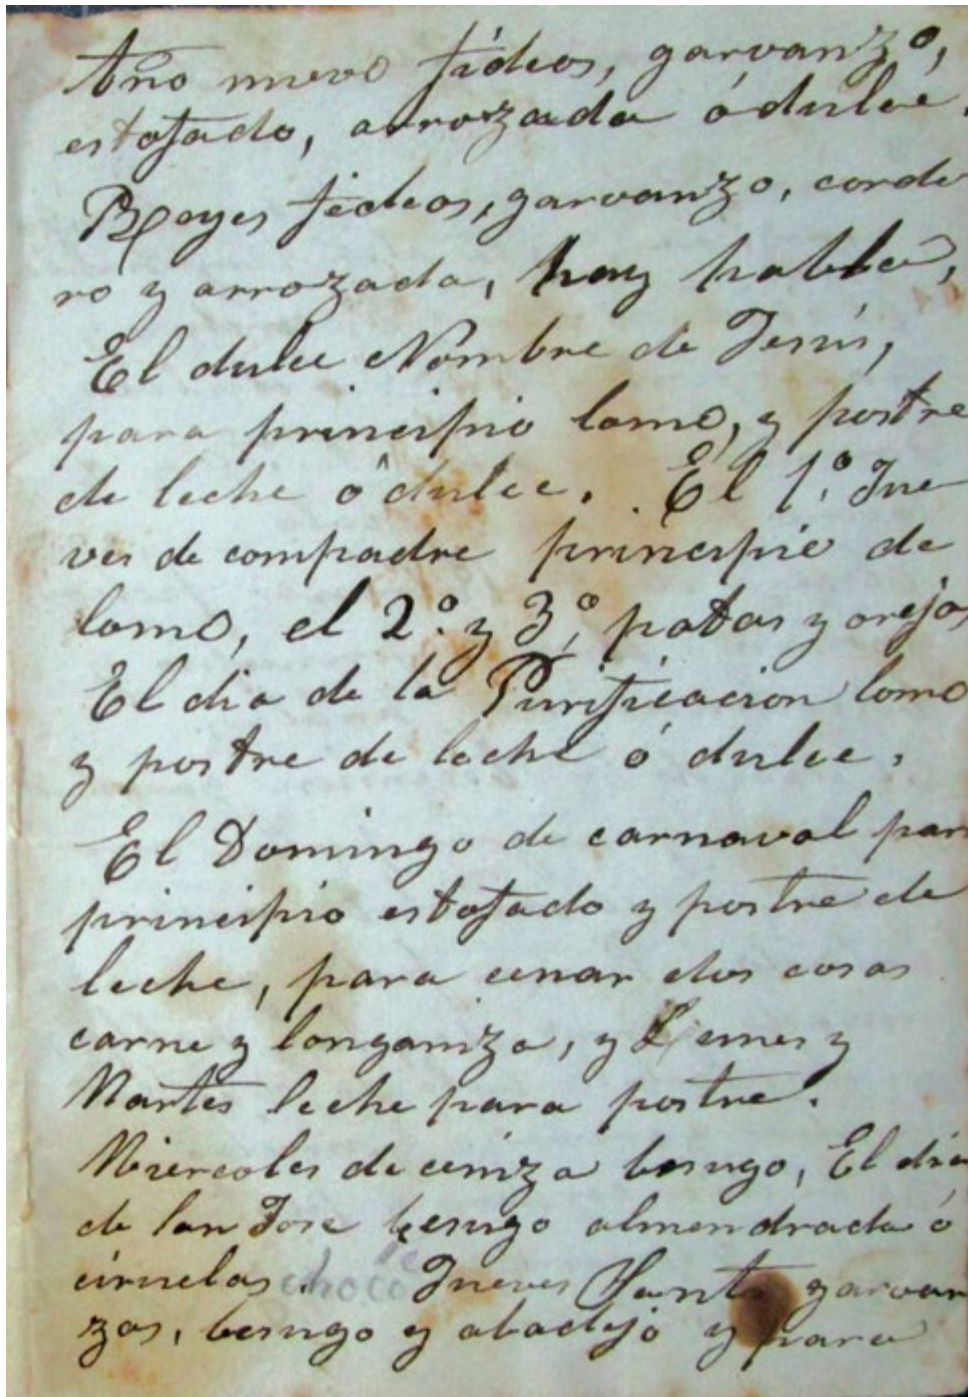 Año nuevo fideos, garvanzo,
estofado, arrozada ó dulce.
Reyes fideos, garvanzo, corde
ro y arrozada, hay habla,
El dulce Nombre de Jesús,
para principio lomo, y postre
de leche ó dulce. El 1.º Jue
ves de compadre principio de
lomo, el 2.º y 3.º, patas y orejas
El dia de la Purificacion lomo
y postre de leche ó dulce.
El Domingo de carnaval para
principio estofado y postre de
leche, para cenar dos cosas
carne y longaniza, y Lunes y
Martes leche para postre.
Miercoles de ceniza besugo, El dia
de San Jose besugo almendrada ó
ciruelas. choco Jueves Santo garvan
zos, besugo y abadejo y para